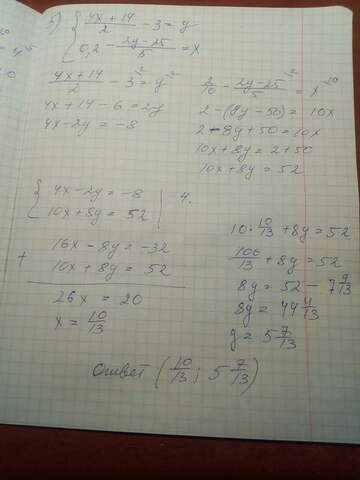 б) { (4x + 14)/2 - 3 = y
0,2 - (2y - 25)/5 = x
(4x + 14)/2 - 3 = y
4x + 14 - 6 = 2y
4x - 2y = -8
2/10 - (2y - 25)/5 = x
2 - (8y - 50) = 10x
2 - 8y + 50 = 10x
10x + 8y = 2 + 50
10x + 8y = 52
{ 4x - 2y = -8 | 4.
10x + 8y = 52
+ 16x - 8y = -32
10x + 8y = 52
26x = 20
x = 10/13
10 · 10/13 + 8y = 52
100/13 + 8y = 52
8y = 52 - 7 9/13
8y = 44 4/13
y = 5 7/13
Ответ (10/13; 5 7/13)